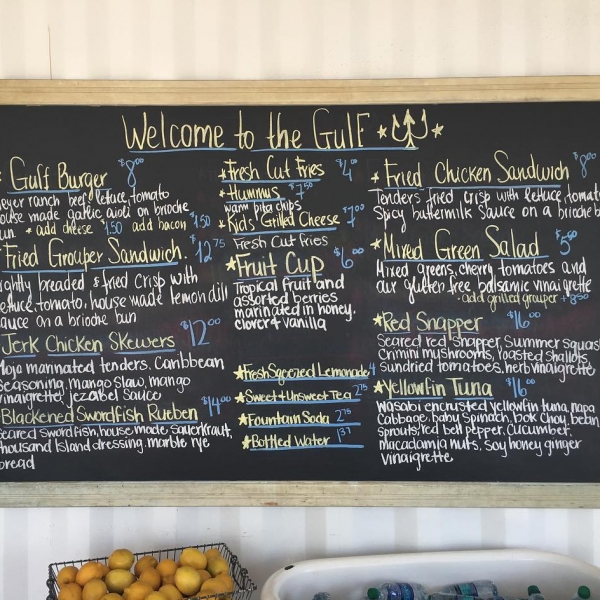 Welcome to the Gulf
Gulf Burger $8.00
eyer ranch beef, lettuce, tomato
ouse made garlic aioli on brioche
un + add cheese $1.50 add bacon $1.50
Fried Grouper Sandwich. $12.75
ightly breaded & fried crisp with
lettuce, tomato, house made lemon dill
sauce on a brioche bun
Jerk Chicken Skewers $12.00
Mojo marinated tenders, Caribbean
seasoning, mango slaw, mango
vinaigrette, jezabel sauce
Blackened Swordfish Rueben $14.00
seared swordfish, house made sauerkraut,
thousand island dressing, marble rye
bread
Fresh Cut Fries $4.00
Hummus $7.50
warm pita chips
Kids Grilled Cheese $7.00
Fresh Cut fries
Fruit Cup $6.00
Tropical fruit and
assorted berries
marinated in honey,
clover & vanilla
Fresh Sqeezed Lemonade 4
Sweet & Unsweet Tea 2.75
Fountain Soda 2.75
Bottled Water
Fried Chicken Sandwich $8.00
Tenders fried crisp with lettuce, tomato
Spicy buttermilk sauce on a brioche b
Mixed Green Salad $5.00
Mixed greens, cherry tomatoes and
our gluten free balsamic vinaigrette
add grilled grouper + 8.50
Red Snapper $16.00
Seared red snapper, summer squash
Crimini mushrooms, roasted shallots,
sundried tomatoes, herb vinaigrette
Yellowfin Tuna $16.00
Wasabi encrusted yellowfin tuna, napa
Cabbage, baby spinach, bok choy, bean
sprouts, red bell pepper, cucumber,
macadamia nuts, soy honey ginger
vinaigrette